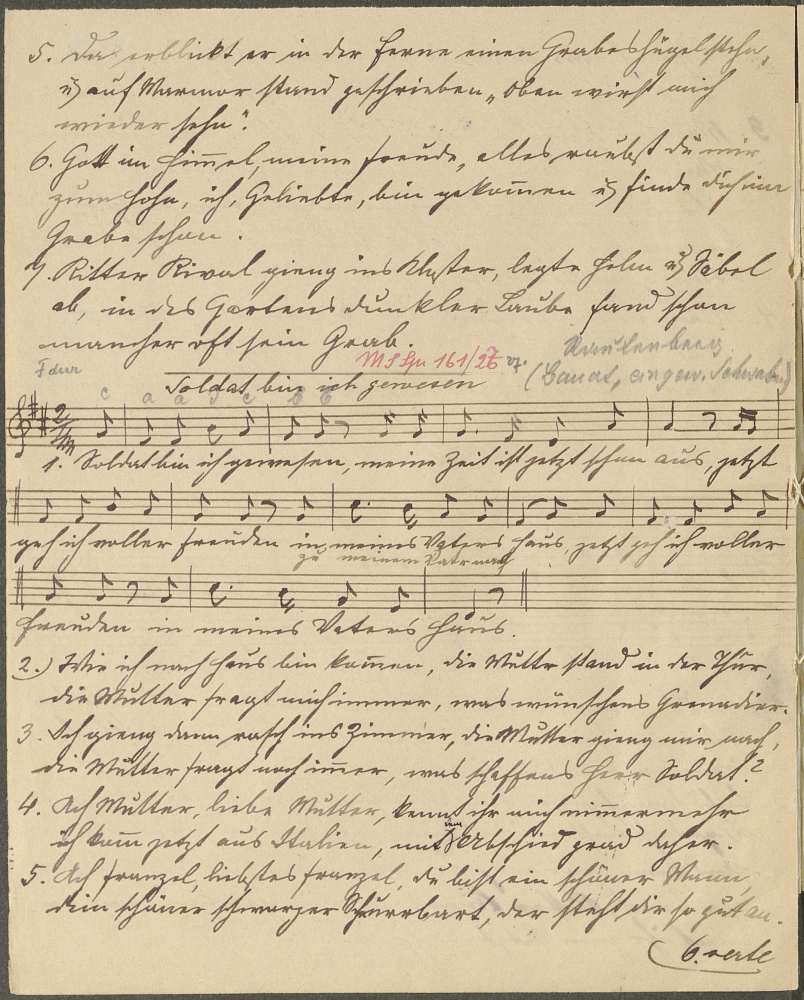 5. Da erblickt er in der Ferne einen Grabeshügel stehn,
u. auf Marmor stand geschrieben „Oben wirst mich
wieder sehn".
6. Gott im Himmel, meine Freude, alles raubst du mir
zum Hohn, ich, Geliebte, bin gekommen u. finde dich im
Grabe schon.
7. Ritter Rival gieng ins Kloster, legte Helm u. Säbel
ab, in des Gartens dunkler Laube fand schon
mancher oft sein Grab.
MS Gu 161/26
F dur
Soldat bin ich gewesen
(Banat, eingew. Schwaben)
1. Soldat bin ich gewesen, meine Zeit ist jetzt schon aus, jetzt
geh ich voller Freuden in meines Vaters Haus, jetzt geh ich voller
zu meinem Vatr nach
Freuden in meines Vaters Haus.
2.) Wie ich nach Haus bin kommen, die Muttr stand in der Thür,
die Mutter fragt mich immer, was wünschens Grenadier.
3. Ich gieng dann rasch ins Zimmer, die Mutter gieng mir nach,
die Mutter fragt noch immer, was schaffens Herr Soldat?
4. Ach Mutter, liebe Mutter, kennt ihr mich nimmermehr
ich komm jetzt aus Italien, mit Abschied grad daher.
5. Ach Franzel, liebstes Franzel, du bist ein schöner Mann,
dein schöner schwarzer Schnurrbart, der steht dir so gut an.
6. verte